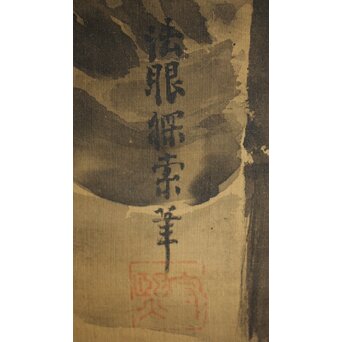 法眼探索筆